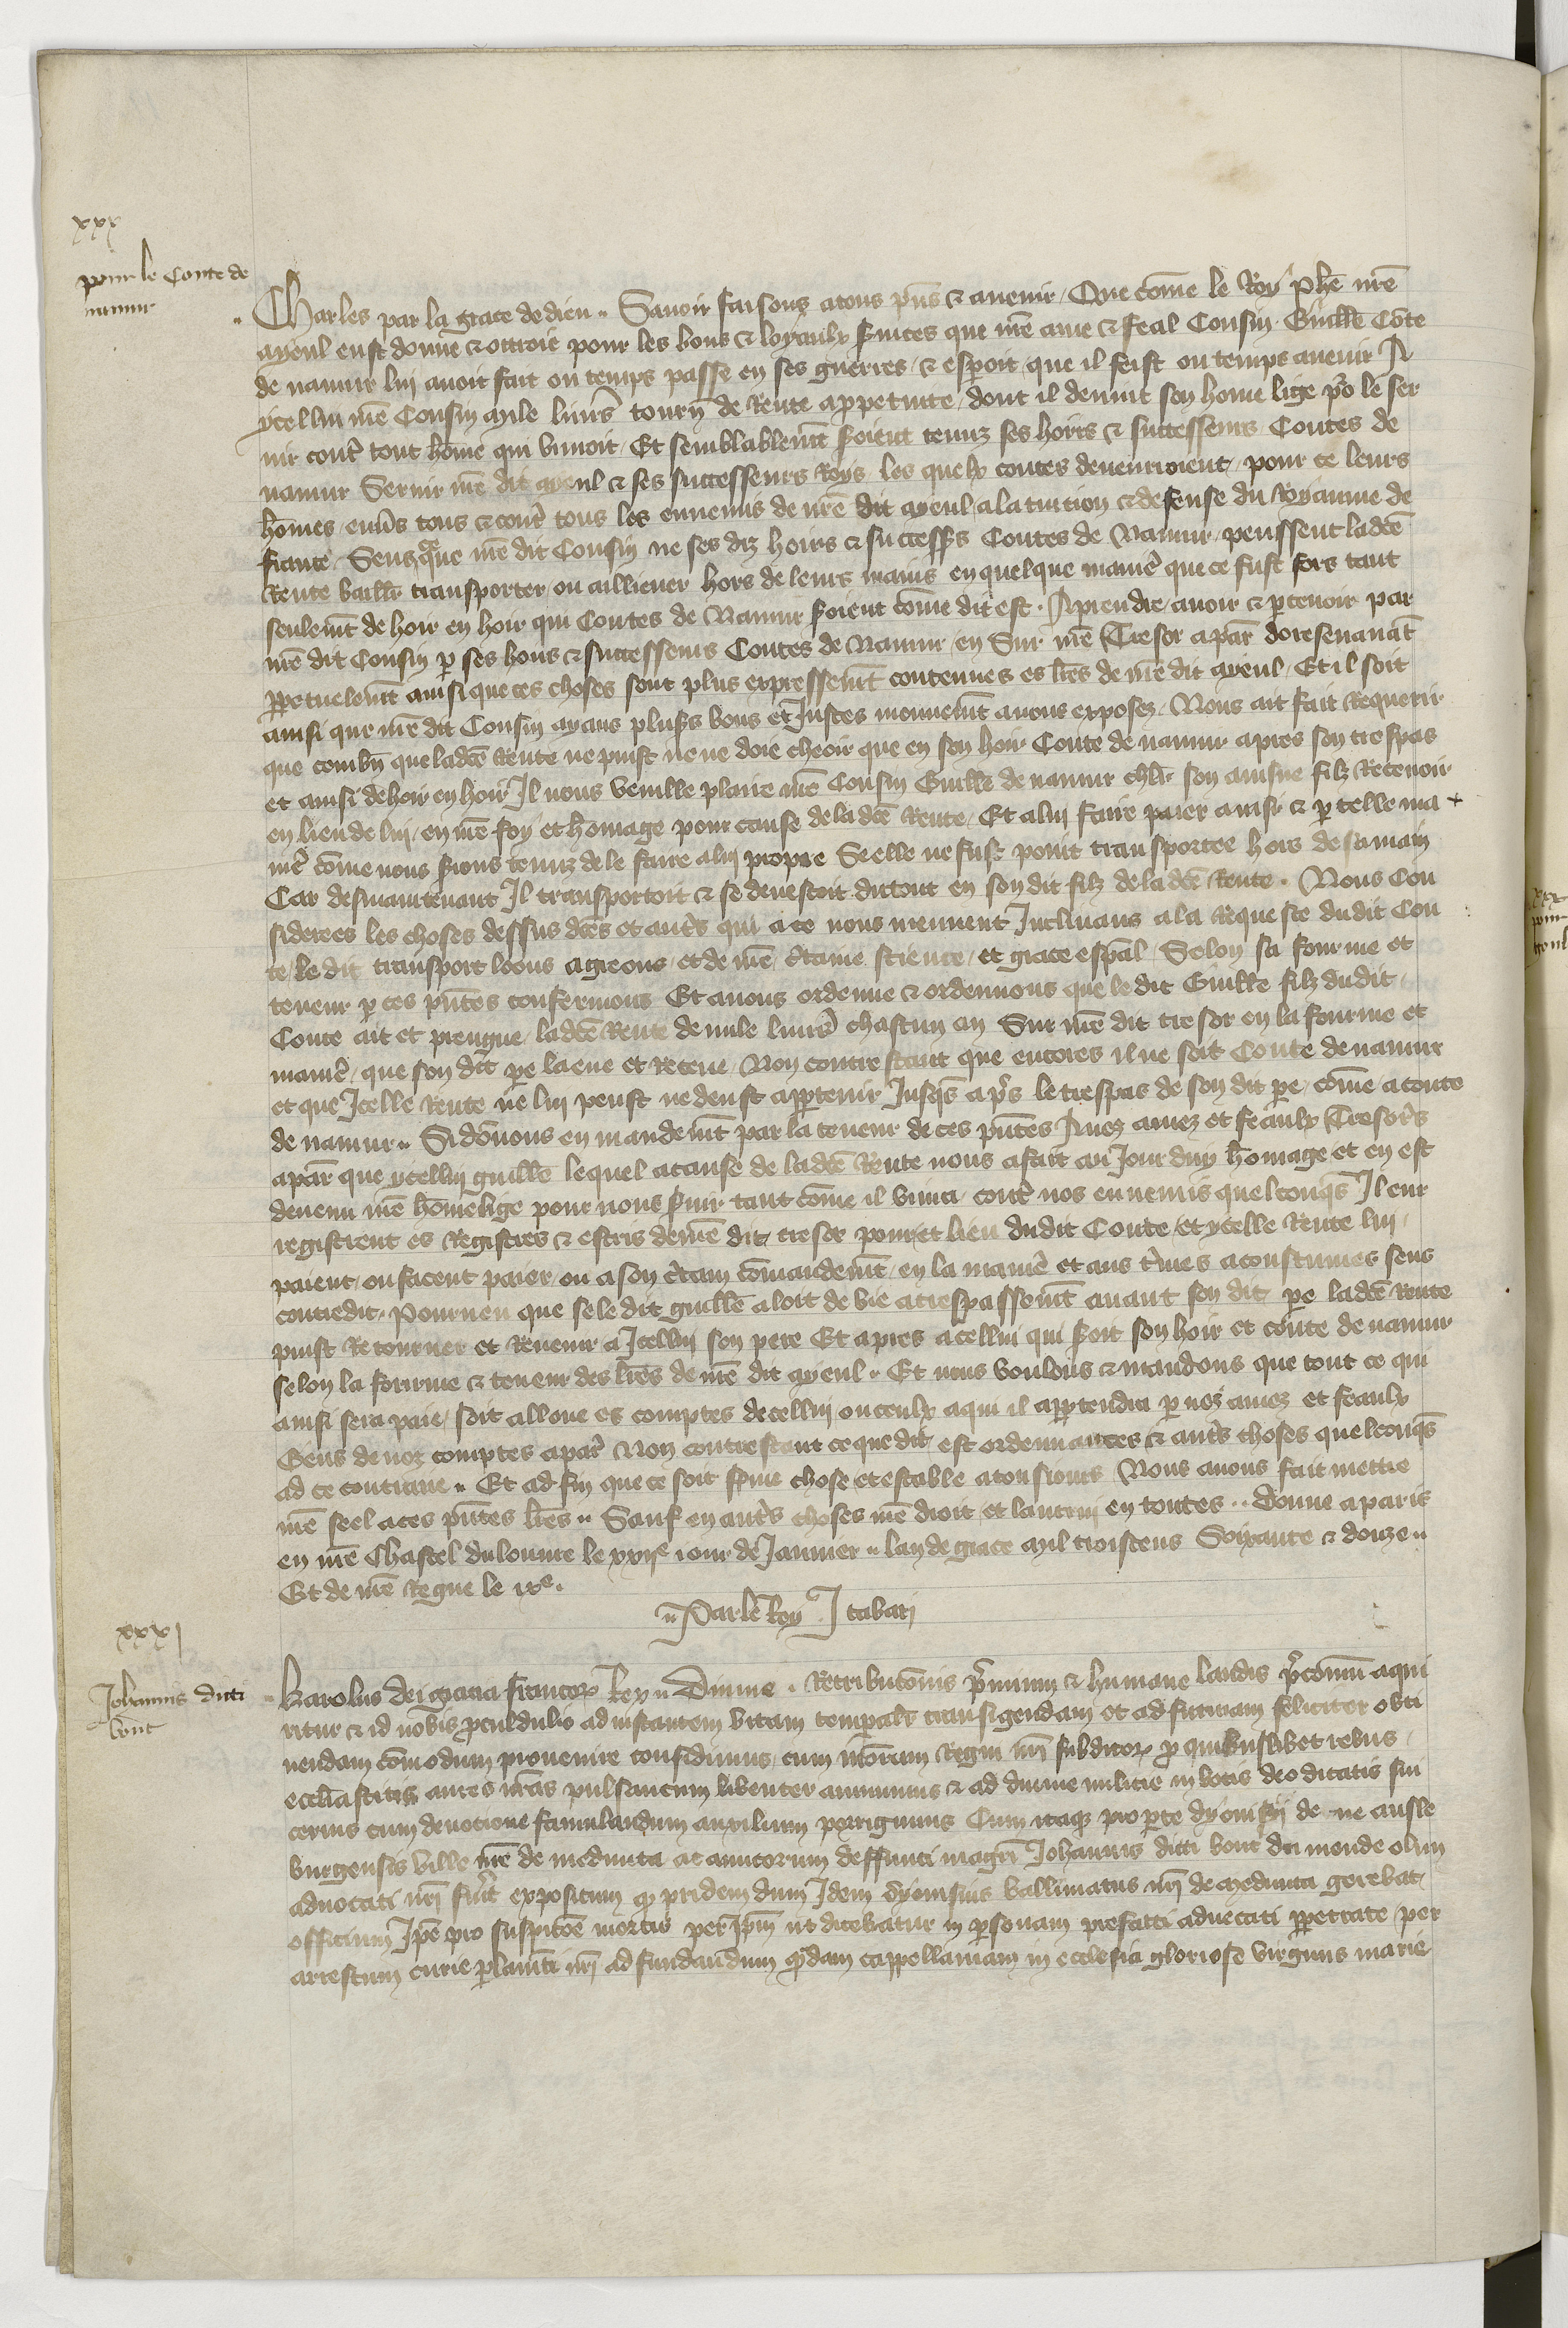 xxx
pour le Conte de
namur
Charles par la grace de dieu. Sauoir faisons a tous p̃ns & auenir. Que cõme le Roy Phẽ nr̃e
ayeul eust donne & ottroie pour les bons & loyaulx s̃uices que nr̃e ame & feal Cousin Guillẽ Cõte
de namur lui auoit fait ou temps passe en ses guerres & esperoit que il feist ou temps auenir A
ycellui nr̃e Cousin mile liurẽs tourñ de Rente a perpetuite dont il deuint son home lige põ le ser
uir cont̃ tout hõme qui viuoit. Et semblablemt̃ s̃oient tenuz ses hoirs & successeurs Contes de
namur Seruir nr̃e dit ayeul & ses successeurs Roys. les quelx contes deuenrroient pour ce leurs
hõmes enũs tous & cont̃ tous les ennemis de nr̃e dit ayeul a la tuition & defense du Royaume de
france Senz que nr̃e dit Cousin ne ses diz hoirs & success̃s Contes de Namur peussent ladcẽ
Rente baill̃r transporter ou alliener hors de leurs mains en quelque manier̃ que ce fust fors tant
seulemt̃ de hoir en hoir qui Contes de Namur s̃oient cõme dit est. A prendre auoir & p̱ceuoir par
nr̃e dit Cousin p̱ ses hoirs & successeurs Contes de Namur en Sur nr̃e Tresor a par̃ doresenauãt
p̱petuelemt̃ ainsi que ces choses sont plus expressemt̃ contenues es lr̃es de nr̃e dit ayeul. Et il soit
ainsi que nr̃e dit Cousin ayans plus̃s bons et Justes mouuemt̃ a nous exposez. Nous ait fait Requerir
que combñ que ladcẽ Rente ne puist ne ne doie cheoir que en son hoir Conte de namur apres son trespas
et ainsi de hoir en hoir Il nous vueille plaire nr̃e Cousin Guillẽ de namur chlr̃ son ainsne filz Receuoir
en lieu de lui en nr̃e foy et hõmage pour cause de ladcẽ Rente. Et a lui faire paier ainsi & p̱ telle ma
nier̃ cõme nous s̃ions tenuz de le faire a lui propre Se elle ne fust point transportee hors de sa main
Car desmaintenant Il transportoit & se deuestoit du tout en son dit filz de ladcẽ Rente. Nous Con
siderees les choses dessus dcẽs et autr̃s qui a ce nous meuuent Inclinans a la Requeste dudit Con
te, le dit transport loons agreons et de nr̃e c̃taine science et grace esp̃al Selon sa fourme et
teneur p̱ ces p̃ntes confermons Et auons ordenne & ordennons que le dit Guillẽ filz dudit
Conte ait et prengne ladcẽ Rente de mile liurẽs chascun an Sur nr̃e dit tresor en la fourme et
manier̃ que son dit pe la eue et Receue. Non contrestant que encores il ne soit Conte de namur
et que Icelle Rente ne lui peust ne deust app̱tenir Jusqs̃ ap̃s le trespas de son dit pe cõme a conte
de namur. Si dõnons en mandemt̃ par la teneur de ces p̃ntes A noz amez et feaulx Tresorr̃s
a par̃ que ycellui guillẽ lequel a cause de ladcẽ Rente nous a fait au Jour duy hõmage et en est
deuenu nr̃e hõme lige pour nous s̃uir tant cõme il viura cont̃ nos ennemis quelconqs̃ Il enr
registrent es Registres & escris de nr̃e dit tresor pour et lieu dudit Conte et ycelle Rente lui
paient ou facent paier ou a son c̃tain cõmandemt̃ en la manier̃ et aus t̃mes acoustumes sens
contredit. Pourueu que se le dit guillẽ aloit de vie a trespassemt̃ auant son dit pe ladcẽ Rente
puist Retourner et Reuenir a Icellui son pere Et apres a cellui qui s̃oit son hoir et conte de namur
selon la fourme & teneur des lr̃es de nr̃e dit ayeul. Et nous voulons & mandons que tout ce qui
ainsi sera paie soit alloue es comptes de cellui ou ceulx a qui il app̱tendra p̱ noz amez et feaulx
Gens de noz comptes a par̃ Non contrestant ce que dit est ordennances & autr̃s choses quelconqs̃
ad ce contraire. Et ad fin que ce soit ferme chose et estable a tousiours Nous auons fait mettre
nr̃e seel a ces p̃ntes lr̃es. Sauf en autr̃s choses nr̃e droit et lautrui en toutes.. Donne a paris
en nr̃e Chastel du louure le xxie iour de Januier. lan de grace mil troiscens Soixante & douze.
Et de nr̃e Regne le ixe.
Par le Roy J tabari
xxxi
Johannis dicti
bont
Karolus dei gracia francoꝝ Rex. Diuine. Retributõnis p̃mium & humane laudis p̃coniũ aqui
ritur & id nobis proculdubio ad instantem vitam tempaalr̃ transigendam et ad futuram feliciter obti
nendam cõmodum prouenire confidimus, cum
ecclĩasticis aures nr̃as pulsancium libenter annuimus & ad diuine milicie in votis deo dicatis sin
cerius cum deuotione famulandum auxilium porrigimus Cum itaqꝫ pro p̱te dyonisij de
burgensis ville nr̃e de medunta ac amicorum deffuncti magr̃i Johannis dicti bont du monde olim
aduocati nr̃i fũit expositum qđ pridem dum Idem dyonisius balliuatus nr̃i de medunta gerebat
officium Ip̃e pro suspicõe mortis per Ip̃m ut dicebatur in p̱sonam prefatti aduocati p̱petrate per
arrestum curie p̱lamti nr̃i ad fundandum quãdam cappellaniam in ecclesia gloriose virginis marie